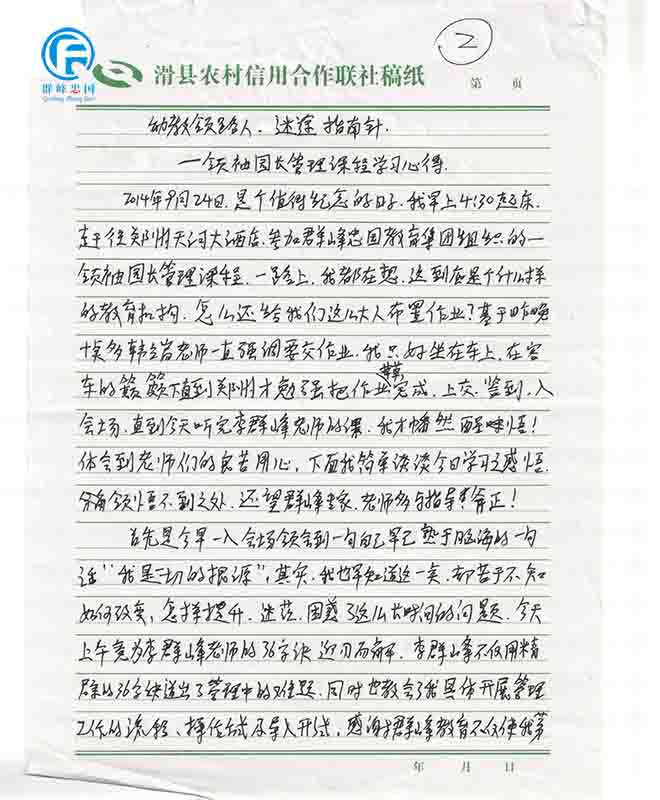 ②
群峰忠国
Qunfeng Zhong Guo
滑县农村信用合作联社稿纸
第 页
幼教领路人、迷途指南针.
—领袖园长管理课程学习心得.
2014年9月24日.是个值得纪念的日子.我早上4:30起床.
赶往郑州天河大酒店.参加群峰忠国教育集团组织的—
领袖园长管理课程.一路上,我都在想.这到底是个什么样
的教育机构.怎么还给我们这么大人布置作业?基于昨晚
老师一直强调要交作业.我只好坐在车上,在客
车的颠簸下直到郑州才勉强把作业草草完成.上交.签到.入
会场.直到今天听完李群峰老师的课.我才幡然醒悟!
体会到老师们的良苦用心,下面我简单谈谈今日学习之感悟.
领悟不到之处.还望群峰专家.老师多与指导斧正!
首先是今早一入会场领会到一句自己早已熟于脑海的一句
话"我是一切的根源",其实.我也早知道这一类,却苦于不知
如何改变,怎样提升.迷茫.困惑了这么长时间的问题.今天
上午竟为李群峰老师的36字诀迎刃而解.李群峰不仅用精
的36字诀道出了管理中的难题.同时也教会了我具体开展管理
工作的流程、操作方式及导入开式,感谢群峰教育不仅使我第
年 月 日